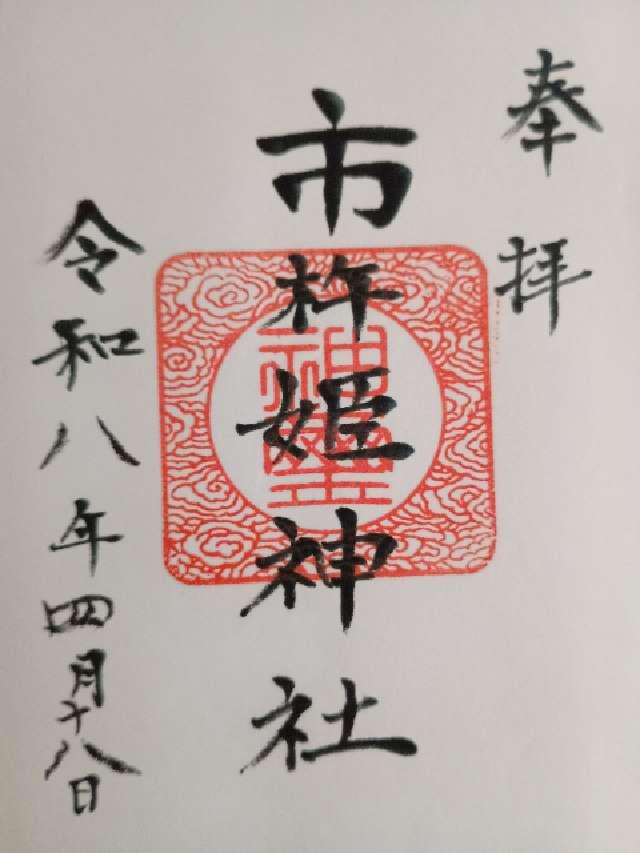 奉拝
市杵姫神社
神璽
令和八年四月十八日